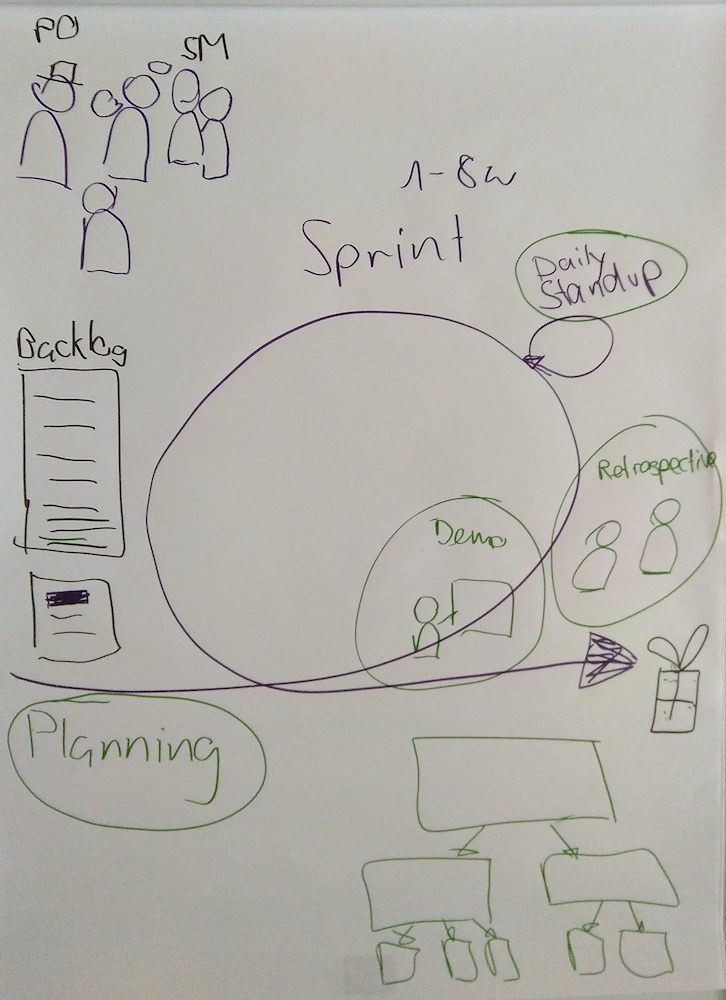 PO
SM
1-8w
Sprint
Daily
Standup
Backlog
Retrospective
Demo
Planning